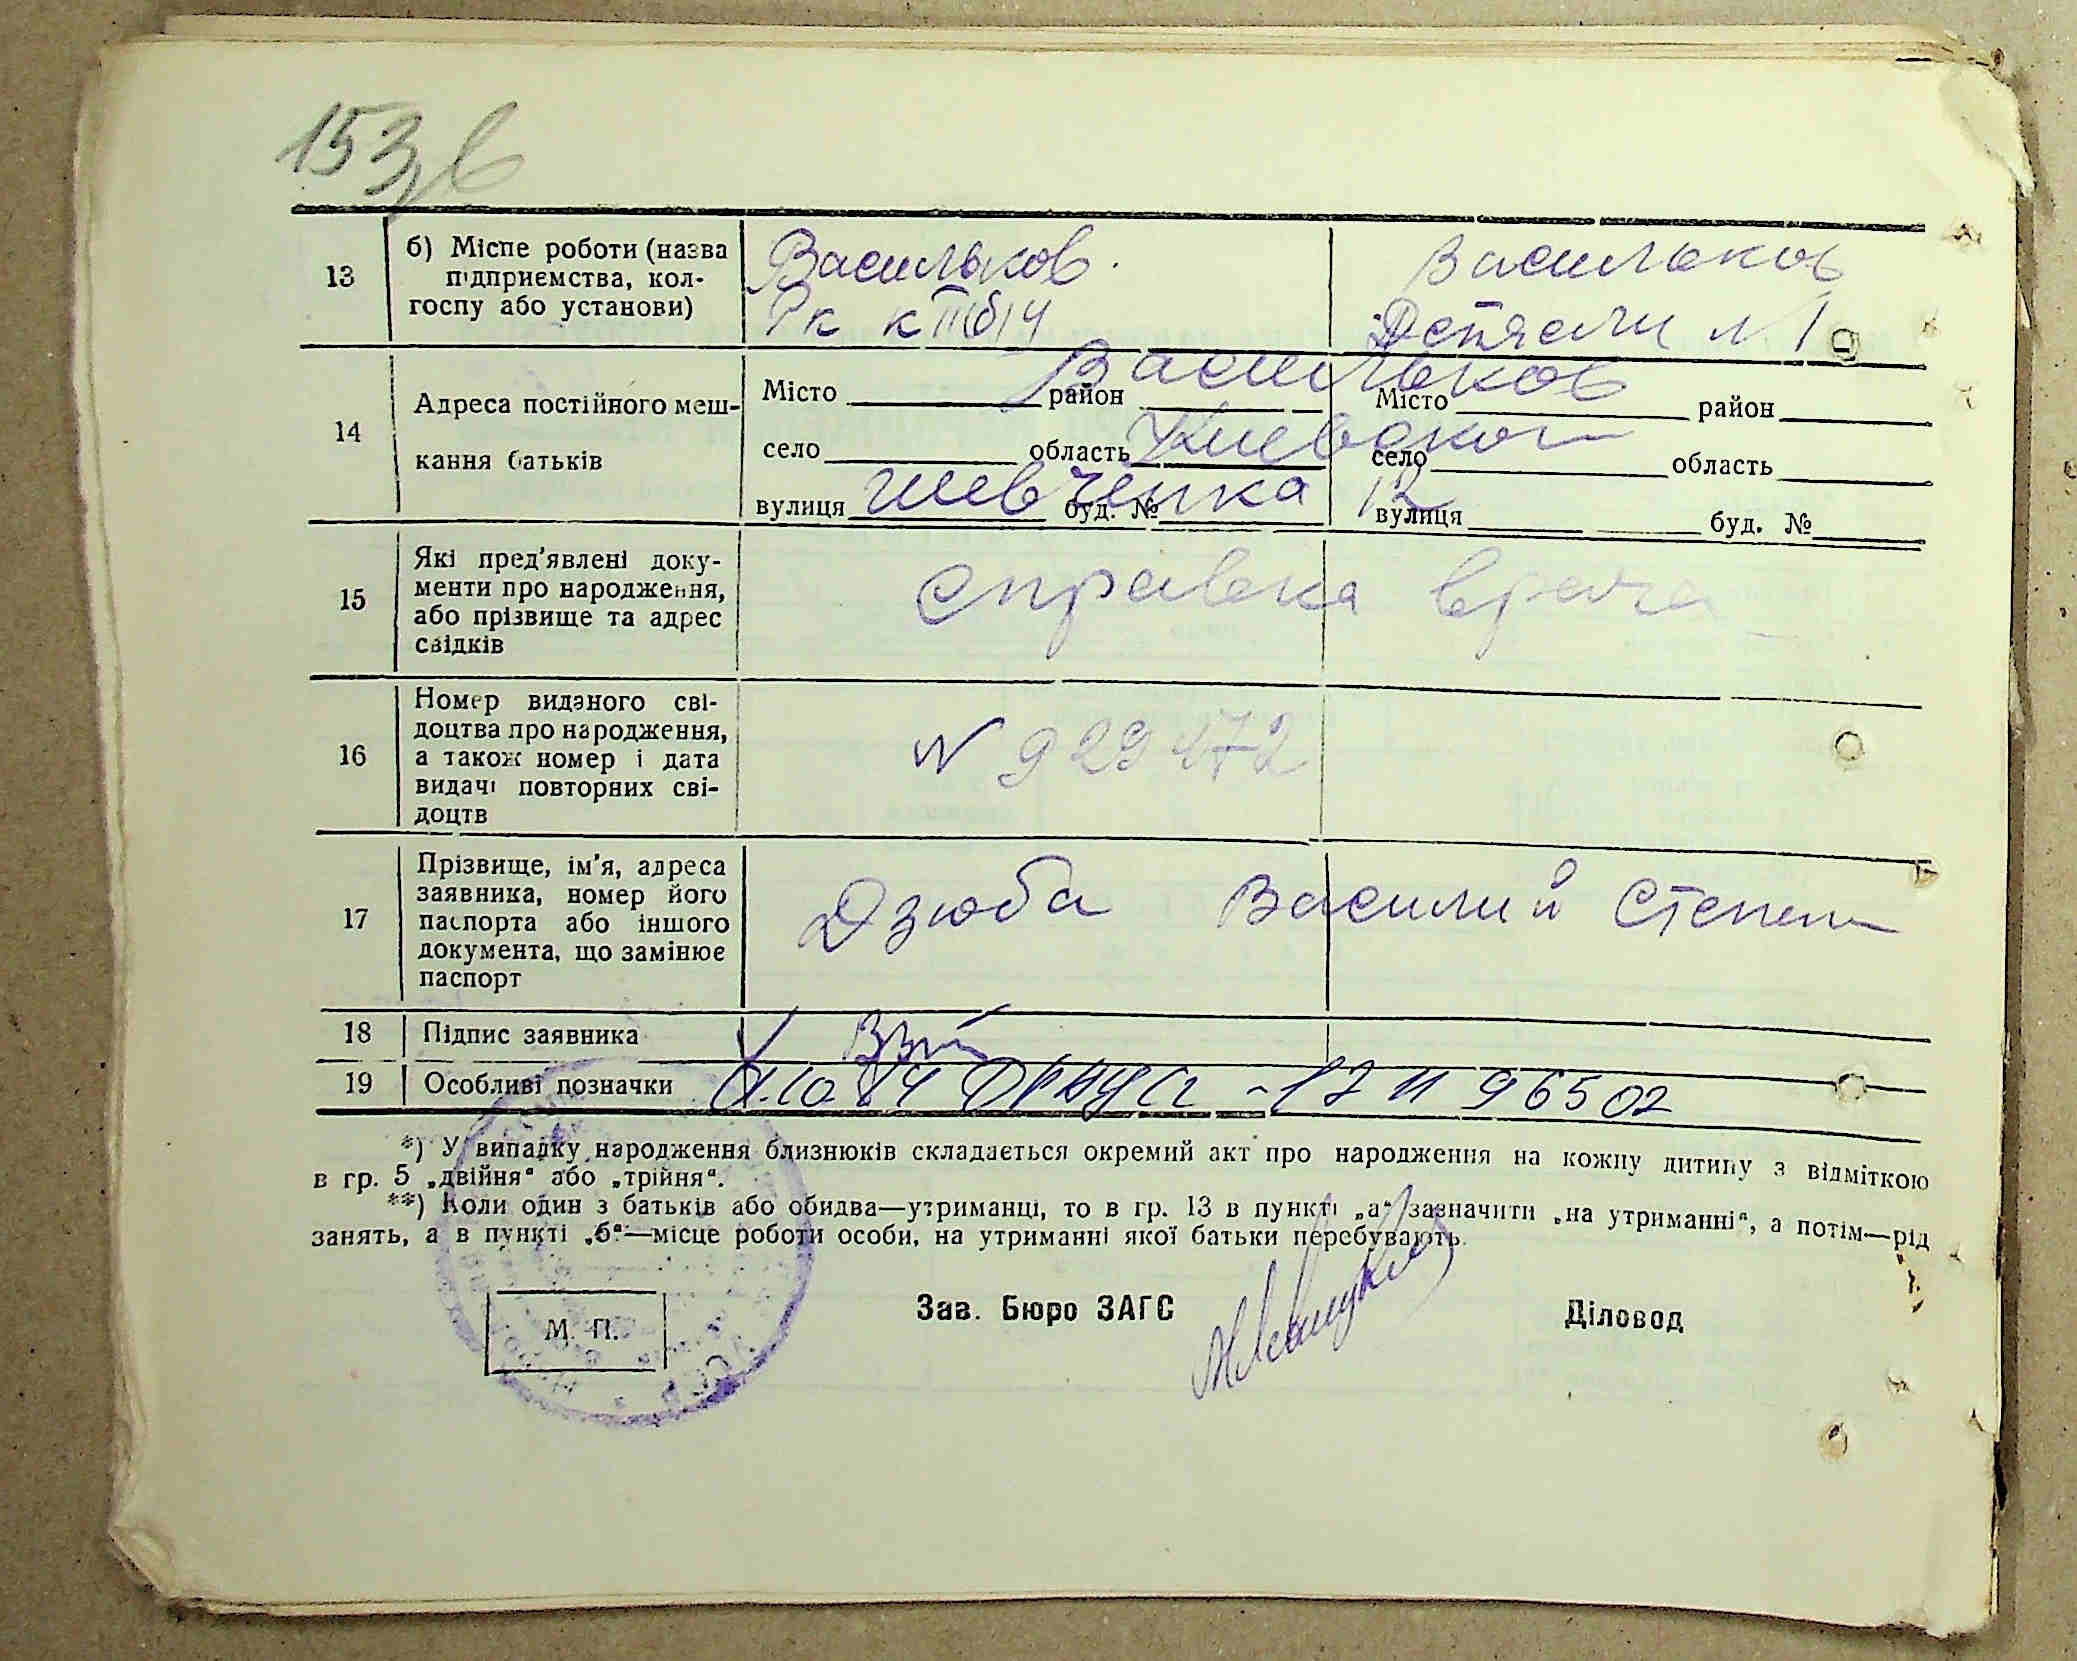 153 в
13 б) Місце роботи (назва підприємства, колгоспу або установи)
Васильков.
Рк КП(б)У
Васильков
Детясли № 1
14 Адреса постійного меш-
кання батьків
Місто район Місто район
Васильков
село область село область
Киевской
вулиця буд. № вулиця буд. №
Шевченка 12
15 Які пред'явлені доку-
менти про народження,
або прізвище та адрес
свідків
Справка врача
16 Номер виданого сві-
доцтва про народження,
а також номер і дата
видачі повторних сві-
доцтв
N 929472
17 Прізвище, ім'я, адреса
заявника, номер його
паспорта або іншого
документа, що замінює
паспорт
Дзюба Василий Степан
18 Підпис заявника
19 Особливі позначки
N 96502
*) У випадку народження близнюків складається окремий акт про народження на кожну дитину з відміткою
в гр. 5 „двійня“ або „трійня“.
**) Коли один з батьків або обидва—утриманці, то в гр. 13 в пункті „а“ зазначити „на утриманні“, а потім—рід
занять, а в пункті „б“—місце роботи особи, на утриманні якої батьки перебувають.
М. П.
Зав. Бюро ЗАГС
Діловод